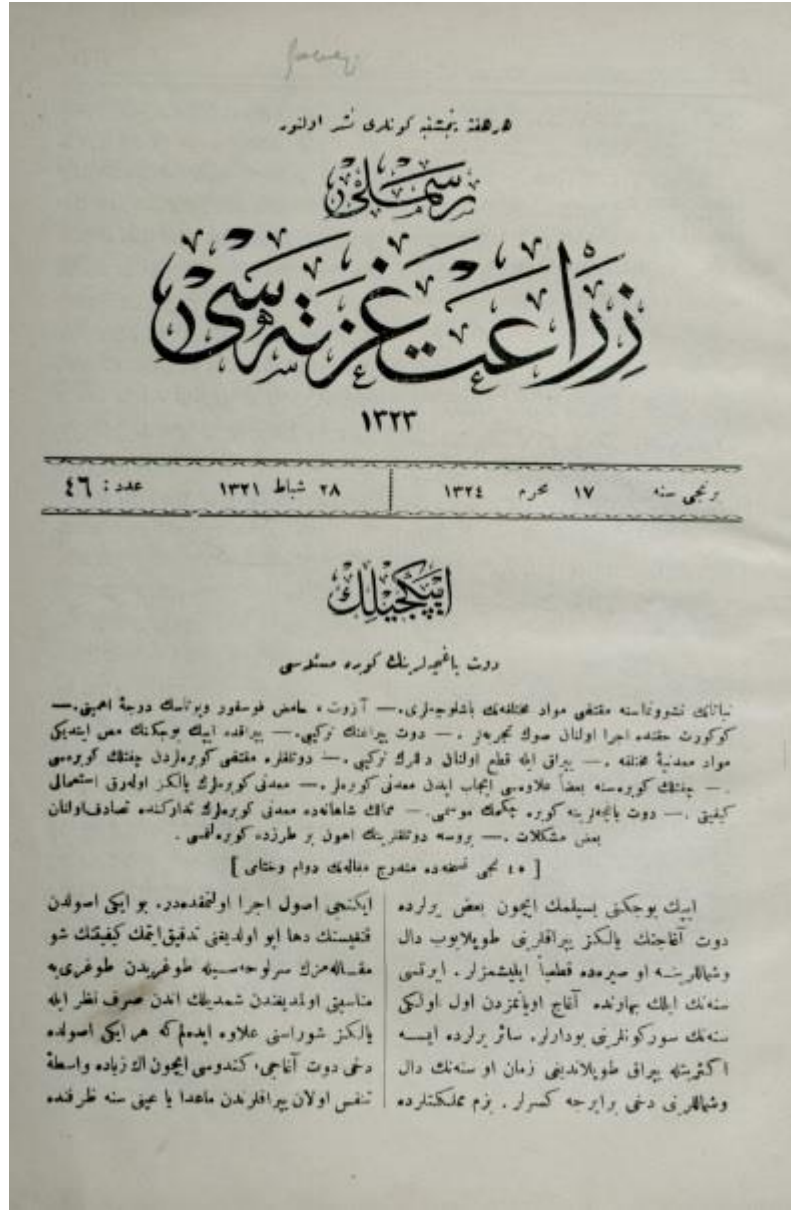 هر هفته پنجشنبه كونلری نشر اولنور
رسملی
زراعت غزته سی
١٣٢٣
برنجی سنه ١٧ محرم ١٣٢٤
٢٨ شباط ١٣٢١ عدد : ٤٦
ایپكجیلك
دوت باغچه‌لرینك كوبره مسئله‌سی
نباتاتك نشوونماسنه مقتضی مواد مختلفه‌نك باشلوجه‌لری .— آزوت ، حامض فوسفور وپوتاسك درجهٔ اهمیتی .—
كوكورت حقنده اجرا اولنان صوك تجربه‌لر .— دوت یپراغنك تركیبی .— یپراقده ایپك بوجكنك مص ایتدیكی
مواد معدنیهٔ مختلفه .— یپراق ایله قطع اولنان داللرك تركیبی .— دوتلقلره مقتضی كوبره‌لردن چفتلك كوبره‌سی
.— چفتلك كوبره‌سنه بعضاً علاوه‌سی ایجاب ایدن معدنی كوبره‌لر .— معدنی كوبره‌لرك یالكز اوله‌رق استعمالی
كیفیتی .— دوت باغچه‌لرینه كوبره چكمك موسمی .— ممالك شاهانه‌ده معدنی كوبره‌لرك تداركنده تصادف‌اولنان
بعض مشكلات .— بروسه دوتلقلرینك اهون بر طرزده كوبره‌لنمسی .
[ ٤٥ نجی نسخه‌ده مندرج مقاله‌نك دوام وختامی ]
ایپك بوجكنی بسیلمك ایچون بعض یرلرده
دوت آغاجنك یالكز یپراقلرینی طوپلایوب دال
وشماللرینه او صیره‌ده قطعیاً ایلیشمزلر . ایرتسی
سنه‌نك ایلك بهارنده آغاج اویانمزدن اول اولكی
سنه‌نك سوركونلرینی بودارلر . سائر یرلرده ایسه
اكثریتله یپراق طوپلاندیغی زمان او سنه‌نك دال
وشماللرینی دخی برابرجه كسرلر . بزم مملكتلرده
ایكنجی اصول اجرا اولنمقده‌در. بو ایكی اصولدن
قنغیسنك دها ایو اولدیغنی تدقیق‌ایتمك كیفیتنك شو
مقاله‌مزك سرلوحه‌سیله طوغریدن طوغری‌یه
مناسبتی اولمدیغندن شمدیلك اندن صرف نظر ایله
یالكز شوراسنی علاوه ایده‌لم‌كه هر ایكی اصولده
دخی دوت آغاجی، كندوسی ایچون اك زیاده واسطهٔ
تنفس اولان یپراقلرندن ماعدا یا عینی سنه ظرفنده